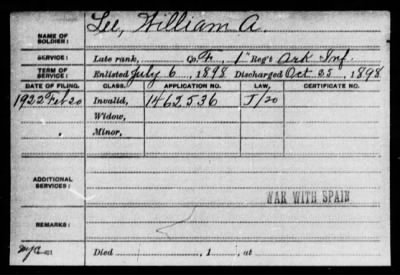 NAME OF SOLDIER: Lee, William A.
SERVICE: Late rank, Co. F, 1" Reg't Ark Inf.
TERM OF SERVICE: Enlisted July 6, 1898 Discharged Oct 25, 1898
DATE OF FILING. CLASS. APPLICATION NO. LAW, CERTIFICATE NO.
1922 Feb 20 Invalid, 1462536 J/20
Widow,
Minor,
ADDITIONAL SERVICES:
WAR WITH SPAIN
REMARKS:
Died , 1 , at